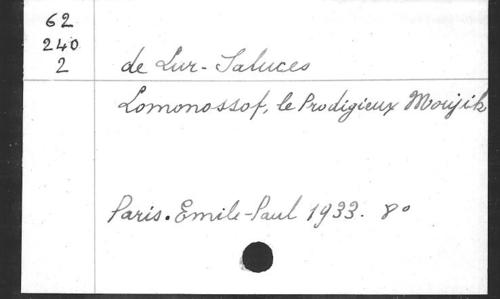 62
240
2
de Lur-Saluces
Lomonossof, le Prodigieux Moujik
Paris. Emile-Paul 1933. 8°